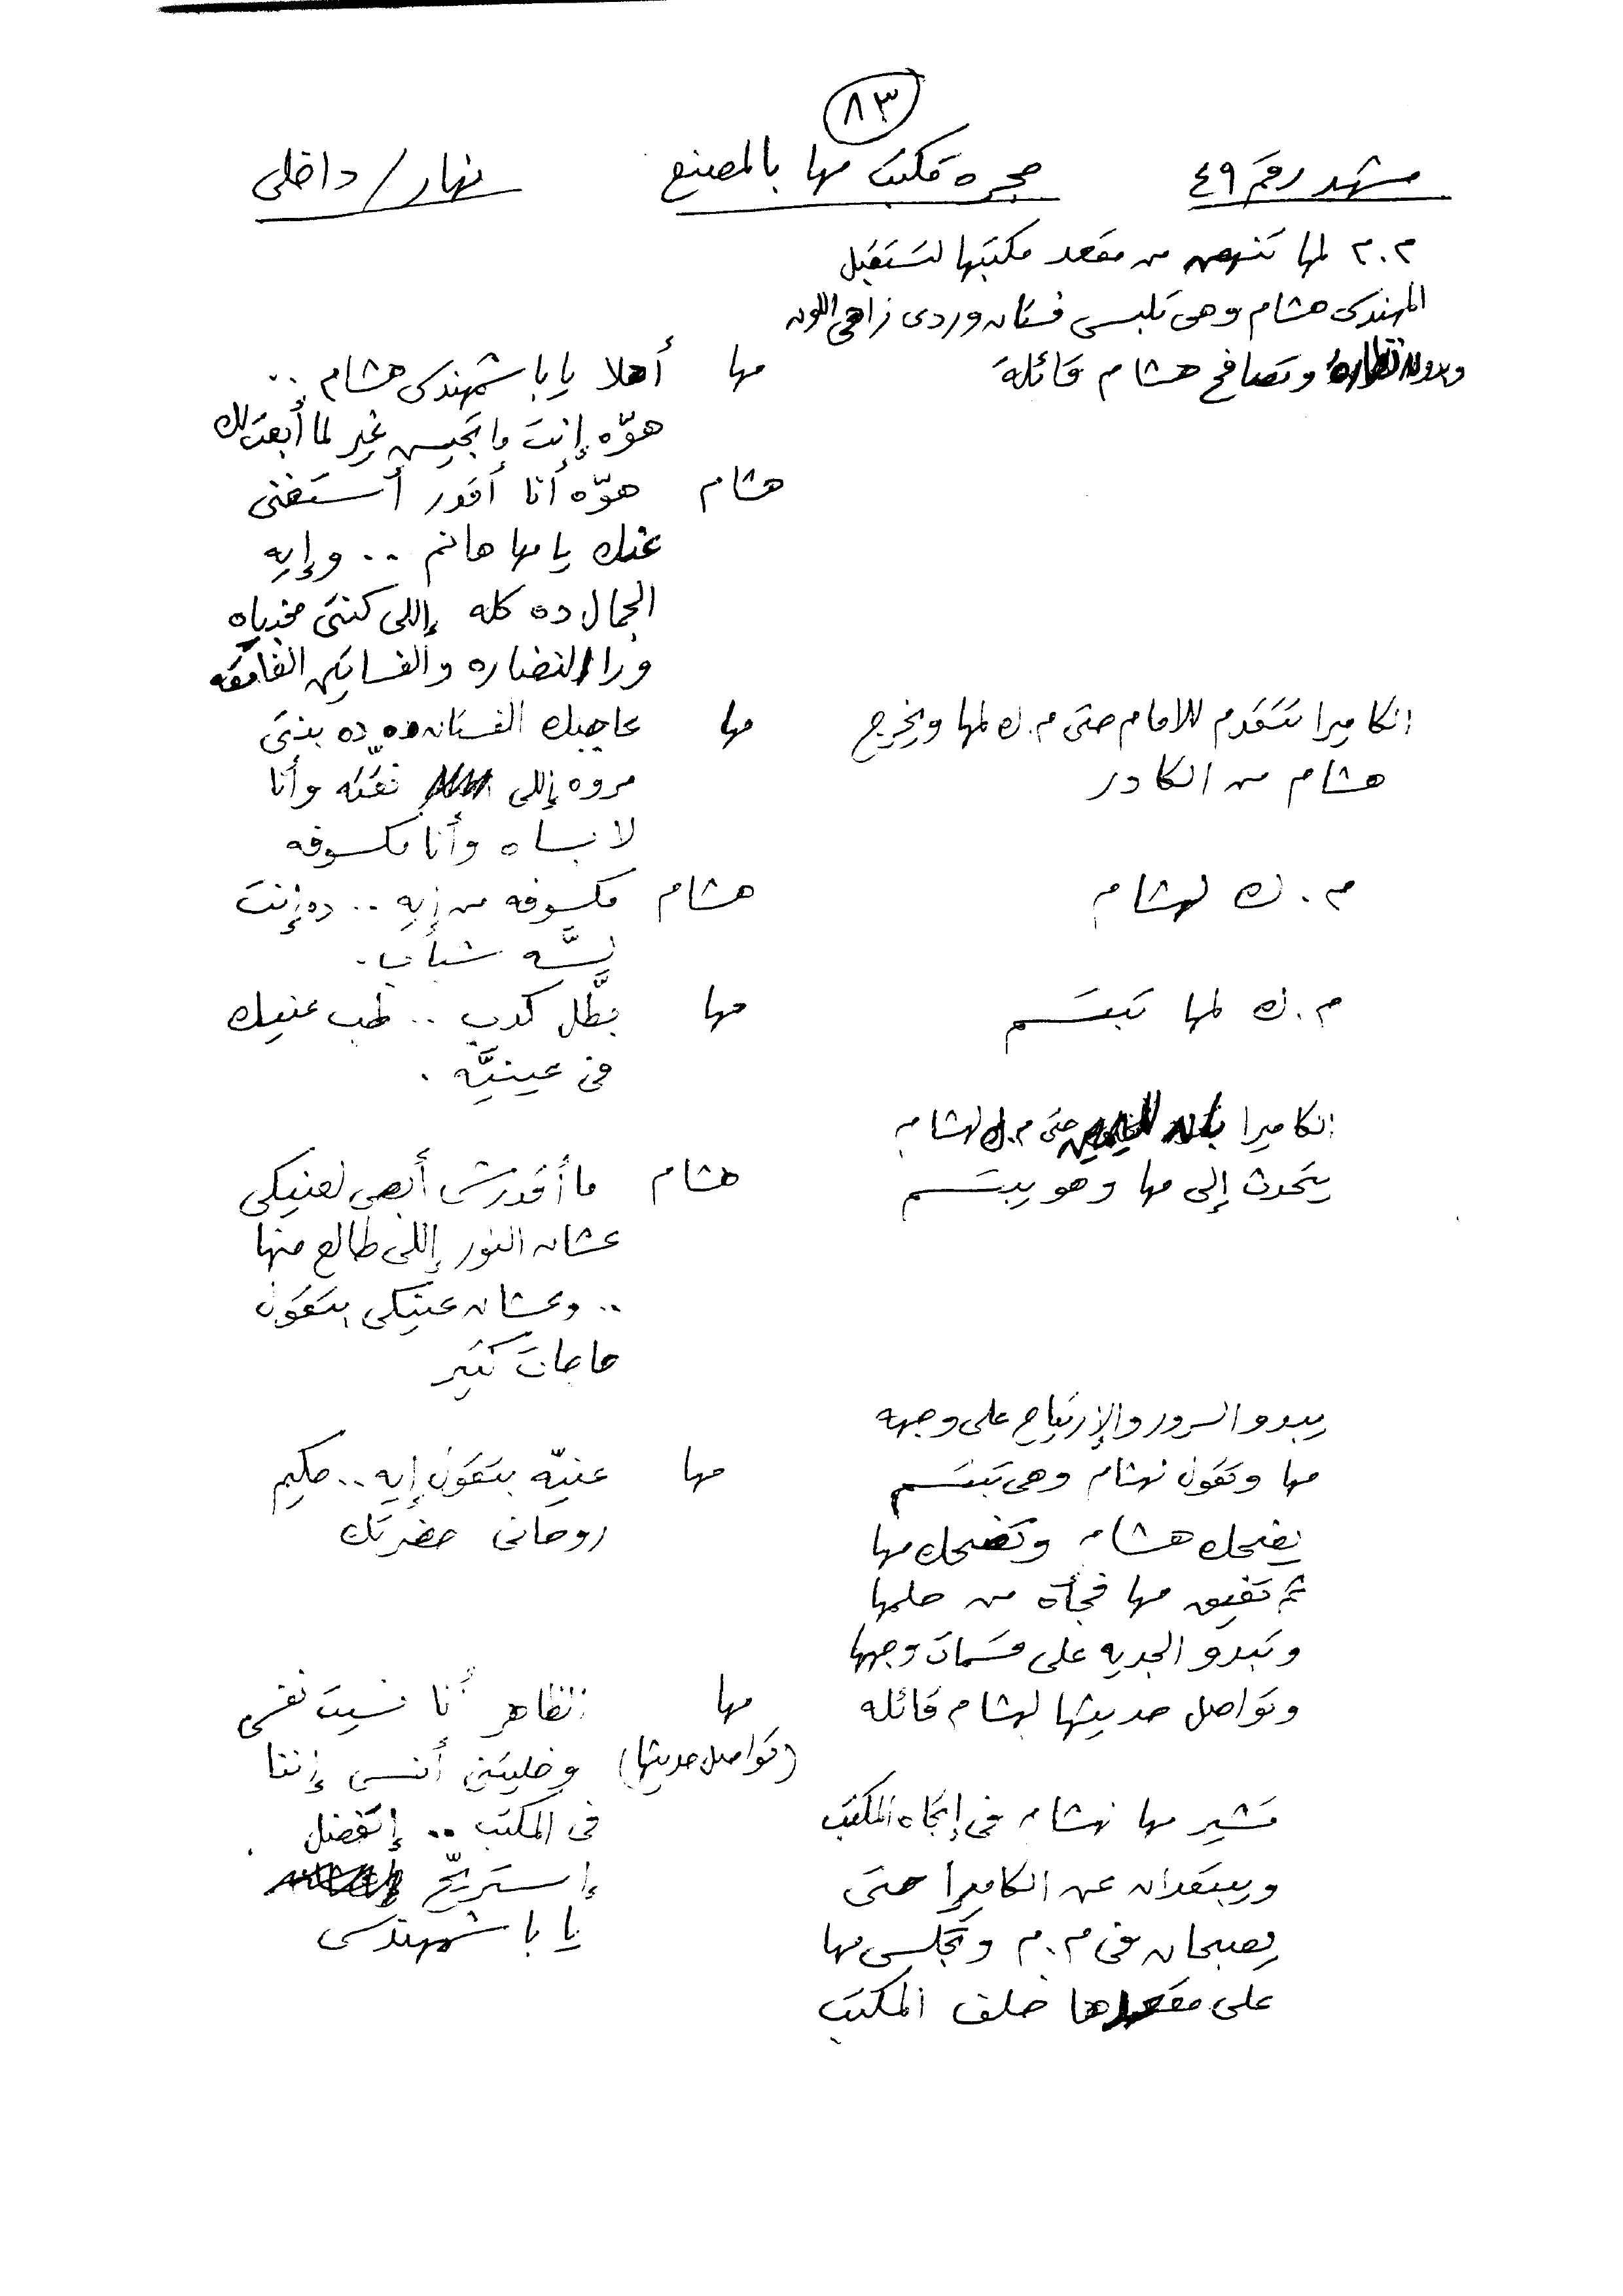 ٨٣
مشهد رقم ٤٩ حجره مكتب مها بالمصنع نهار / داخلى
م.م لمها تنهض من مقعد مكتبها لتستقبل
المهندس هشام وهى تلبس فستان وردى زاهى اللون
وبدون نظاره وتصافح هشام قائلة
مها أهلا يا باشمهندس هشام ..
هوّه إنت ما بتجيش غير لما أبعت لك
هشام هوّه أنا أقدر أستغنى
عنك يا مها هانم .. وإيه
الجمال ده كله إللى كنتى مخبياه
ورا النضاره والفساتين الغامقه
الكاميرا تتقدم للامام حتى م.ك لمها ويخرج
هشام من الكادر
مها عاجبك الفستان ده ده بنتى
مروه إللى نقّته وأنا
لابساه وأنا مكسوفه
م.ك لهشام
هشام مكسوفه من إيه .. ده إنت
لِسَّه شباب.
م.ك لمها تبتسم
مها بطَّل كدب .. طب عنيك
فى عينيَّه .
الكاميرا حتى م.ك لهشام
يتحدث إلى مها وهو يبتسم
هشام ما أقدرش أبص لعنيكى
عشان النور إللى طالع منها
.. وعشان عنيكى بتقول
حاجات كتير
يبدو السرور والإرتياح على وجه
مها وتقول لهشام وهى تبتسم
مها عنيّه بتقول إيه .. حكيم
روحانى حضرتك
يضحك هشام وتضحك مها
ثم تفيق مها فجأة من حلمها
وتبدو الجديه على قسمات وجهها
وتواصل حديثها لهشام قائله
مها الظاهر أنا نسيت نفسى
(تواصل حديثها) وخليتنى أنسى إننا
فى المكتب .. إتفضل
إستريّح
يا باشمهندس
تشير مها لهشام فى إتجاه المكتب
ويبتعدان عن الكاميرا حتى
يصبحان فى م.م وتجلس مها
على مقعدها خلف المكتب